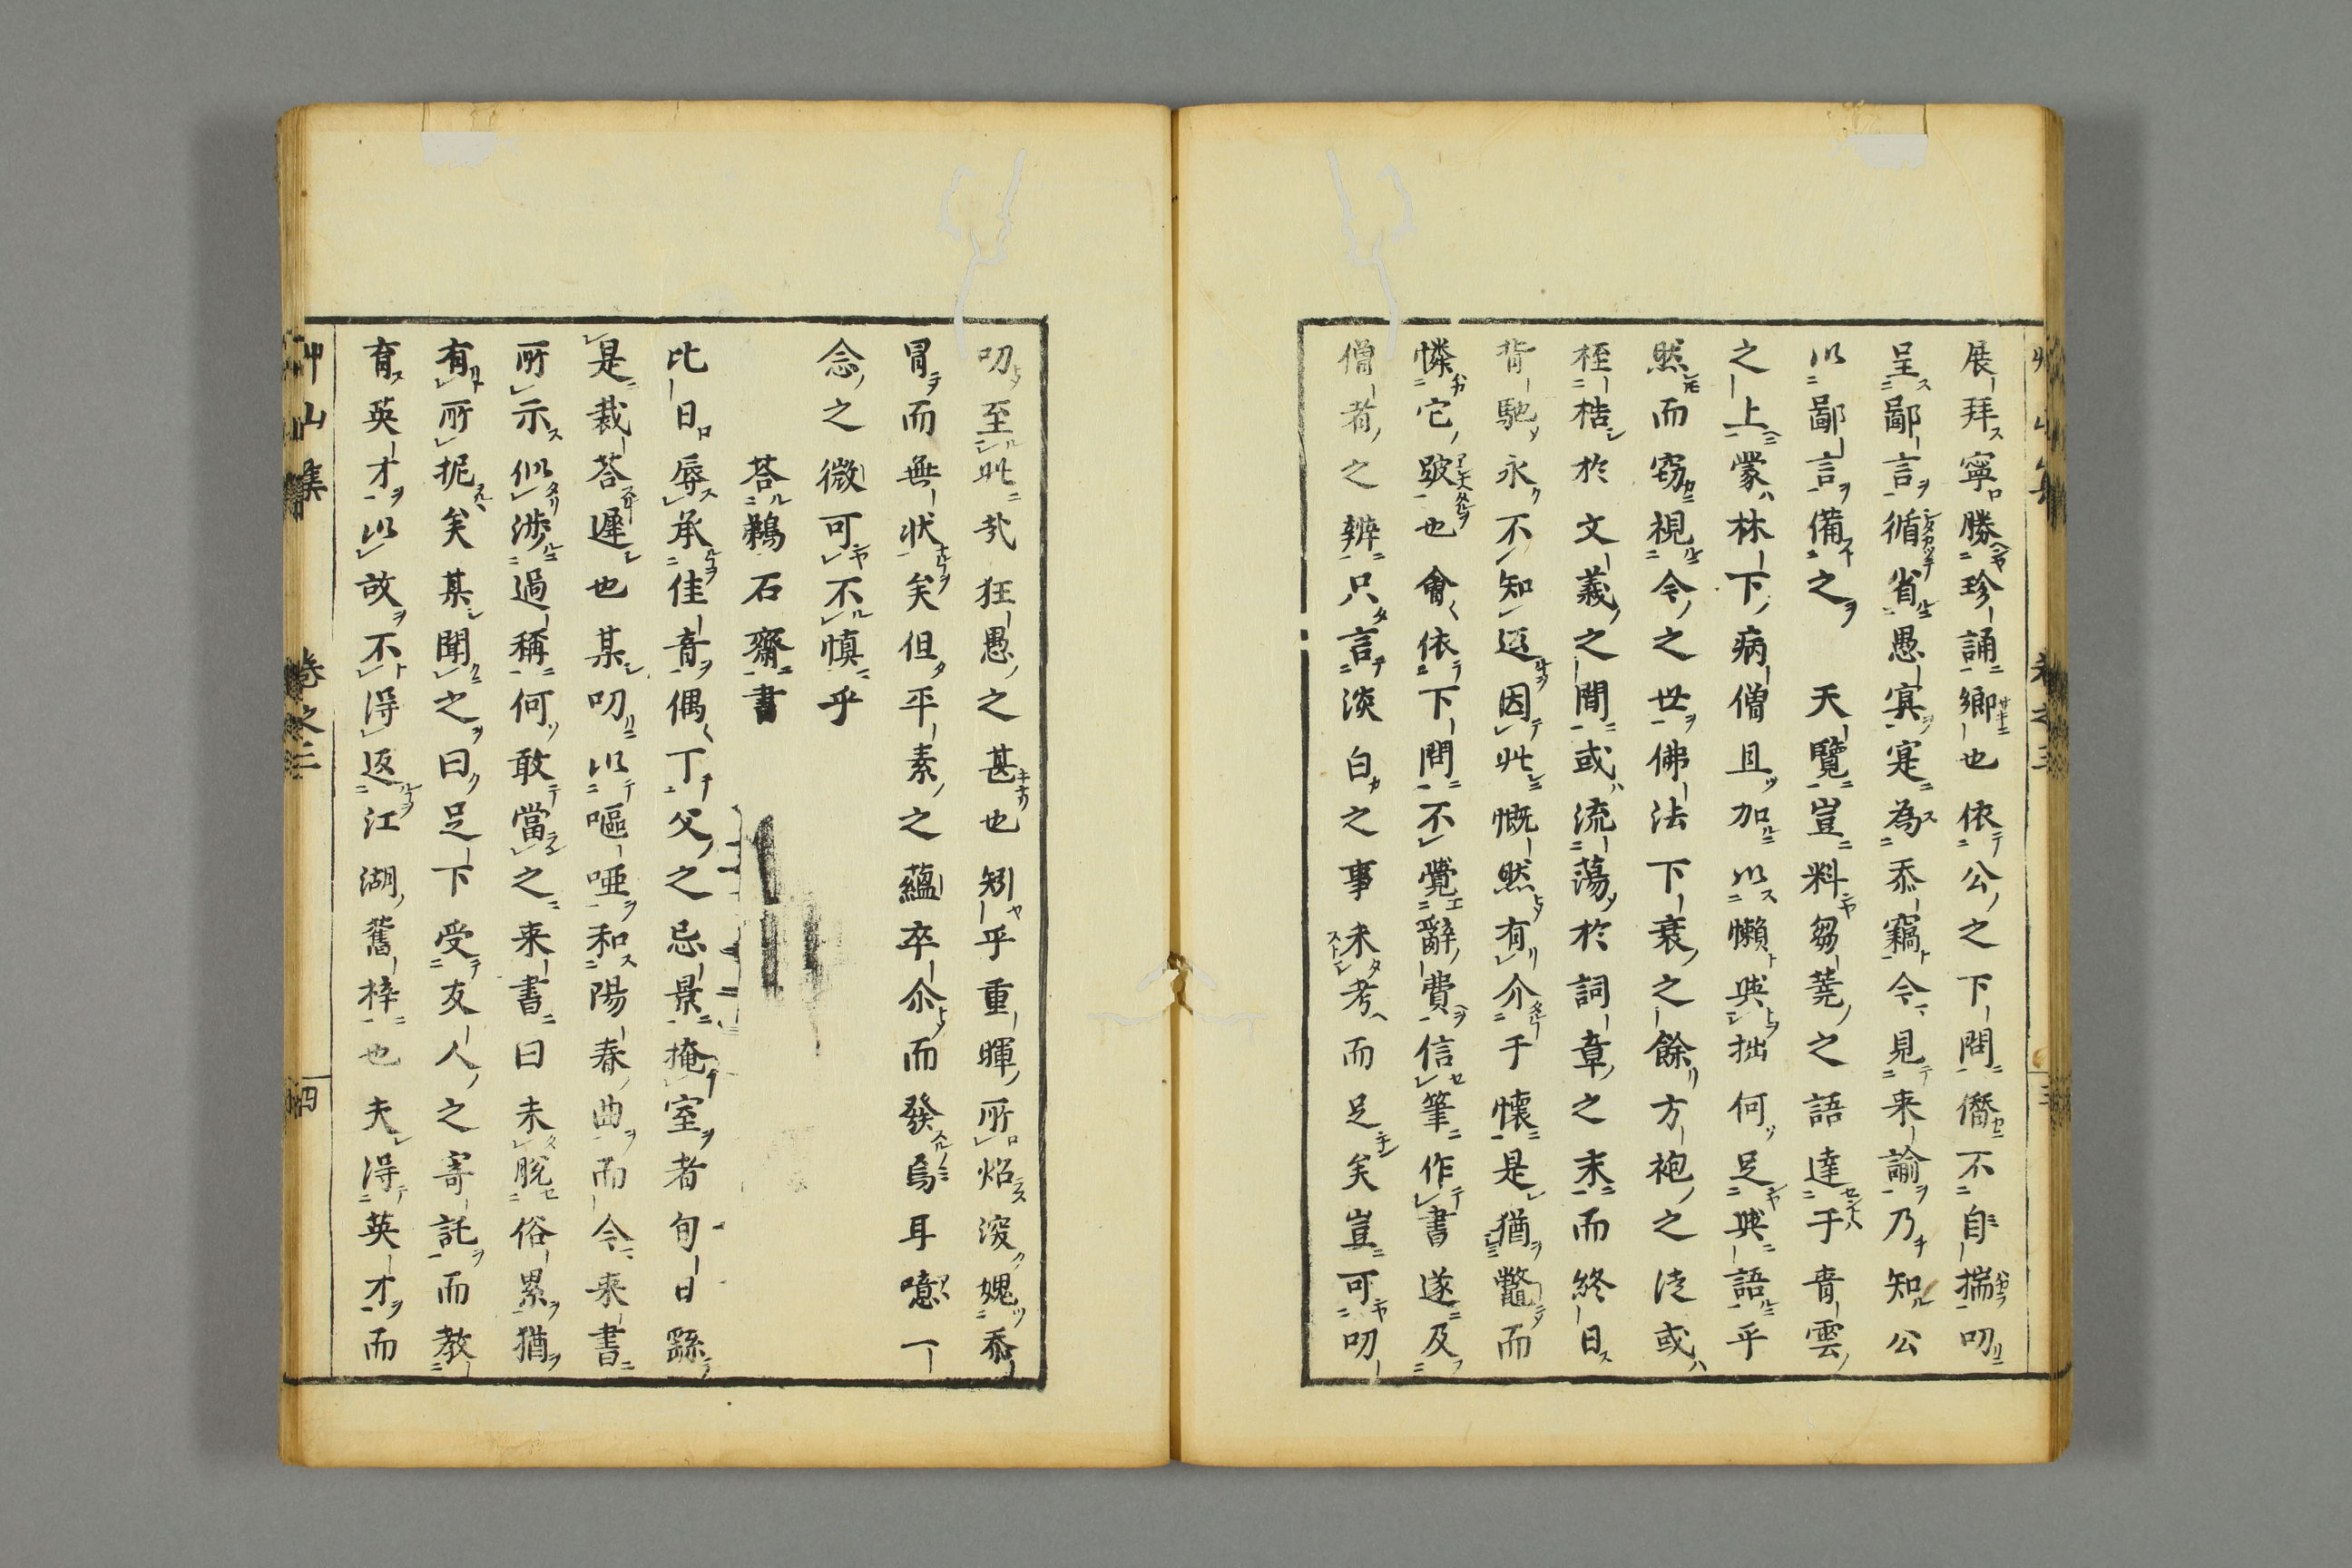 展拜寧勝珍誦鄉也依公之下問僭不自揣叨
呈鄙言循省愚寘寔為忝竊令見来諭乃知公
以鄙言備之　天覽豈料芻蕘之語達于青雲
之上蒙林下病僧且加以懶與拙何足與語乎
然而窃視今之世佛法下衰之餘方袍之徒或
桎梏於文義之間或流蕩於詞章之末而終日
背馳永不知返因此慨然有介于懷是猶鼈而
憐它跛也會依下問不覺辭費信筆作書遂及
僧者之辨只言淡白之事未考而足矣豈可叨
叨至此哉狂愚之甚也矧乎重暉所焰深媿忝
冒而無状矣但平素之蘊卒尒而發焉耳噫一
念之微可不慎乎
荅鵜石齋書
比日辱承佳音偶丁父之忌景掩室者旬日繇
是裁荅遲也某叨以嘔啞和陽春曲而令来書
所示似涉過稱何敢當之来書曰未脱俗累猶
有所抳矣某聞之曰足下受友人之寄託而教
育英才以故不得返江湖舊梓也夫得英才而
艸山集　卷之三　四